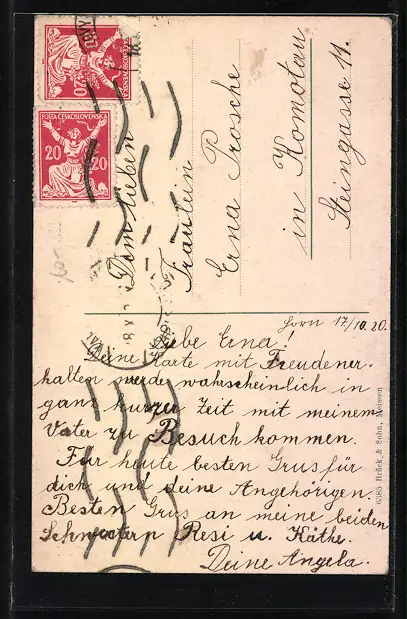 POSTA ČESKOSLOVENSKÁ
20 20
Dem lieben
Fräulein
Erna Prosche
in Komotau
Steingasse 11.
Horn 17/10. 20.
Liebe Erna!
Deine Karte mit Freuden er-
halten werde wahrscheinlich in
ganz kurzer Zeit mit meinem
Vater zu Besuch kommen.
Für heute besten Grus für
dich und deine Angehörigen.
Besten Grus an meine beiden
Schwestern Resi u. Käthe.
Deine Angela.
Brück & Sohn, Meissen